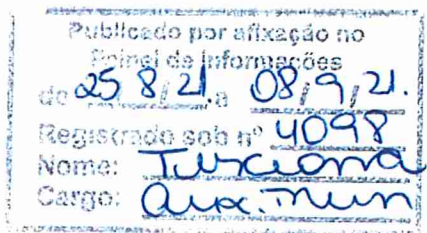 Publicado por afixação no
Painel de Informações
de 25/8/21. a 08/9/21.
Registrado sob nº 4098
Nome:
Cargo: Aux. Mun